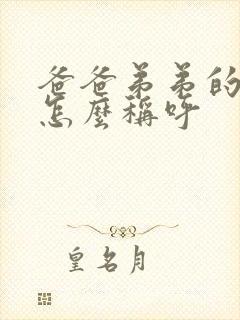 爸爸弟弟的
怎麼稱呼
皇名月